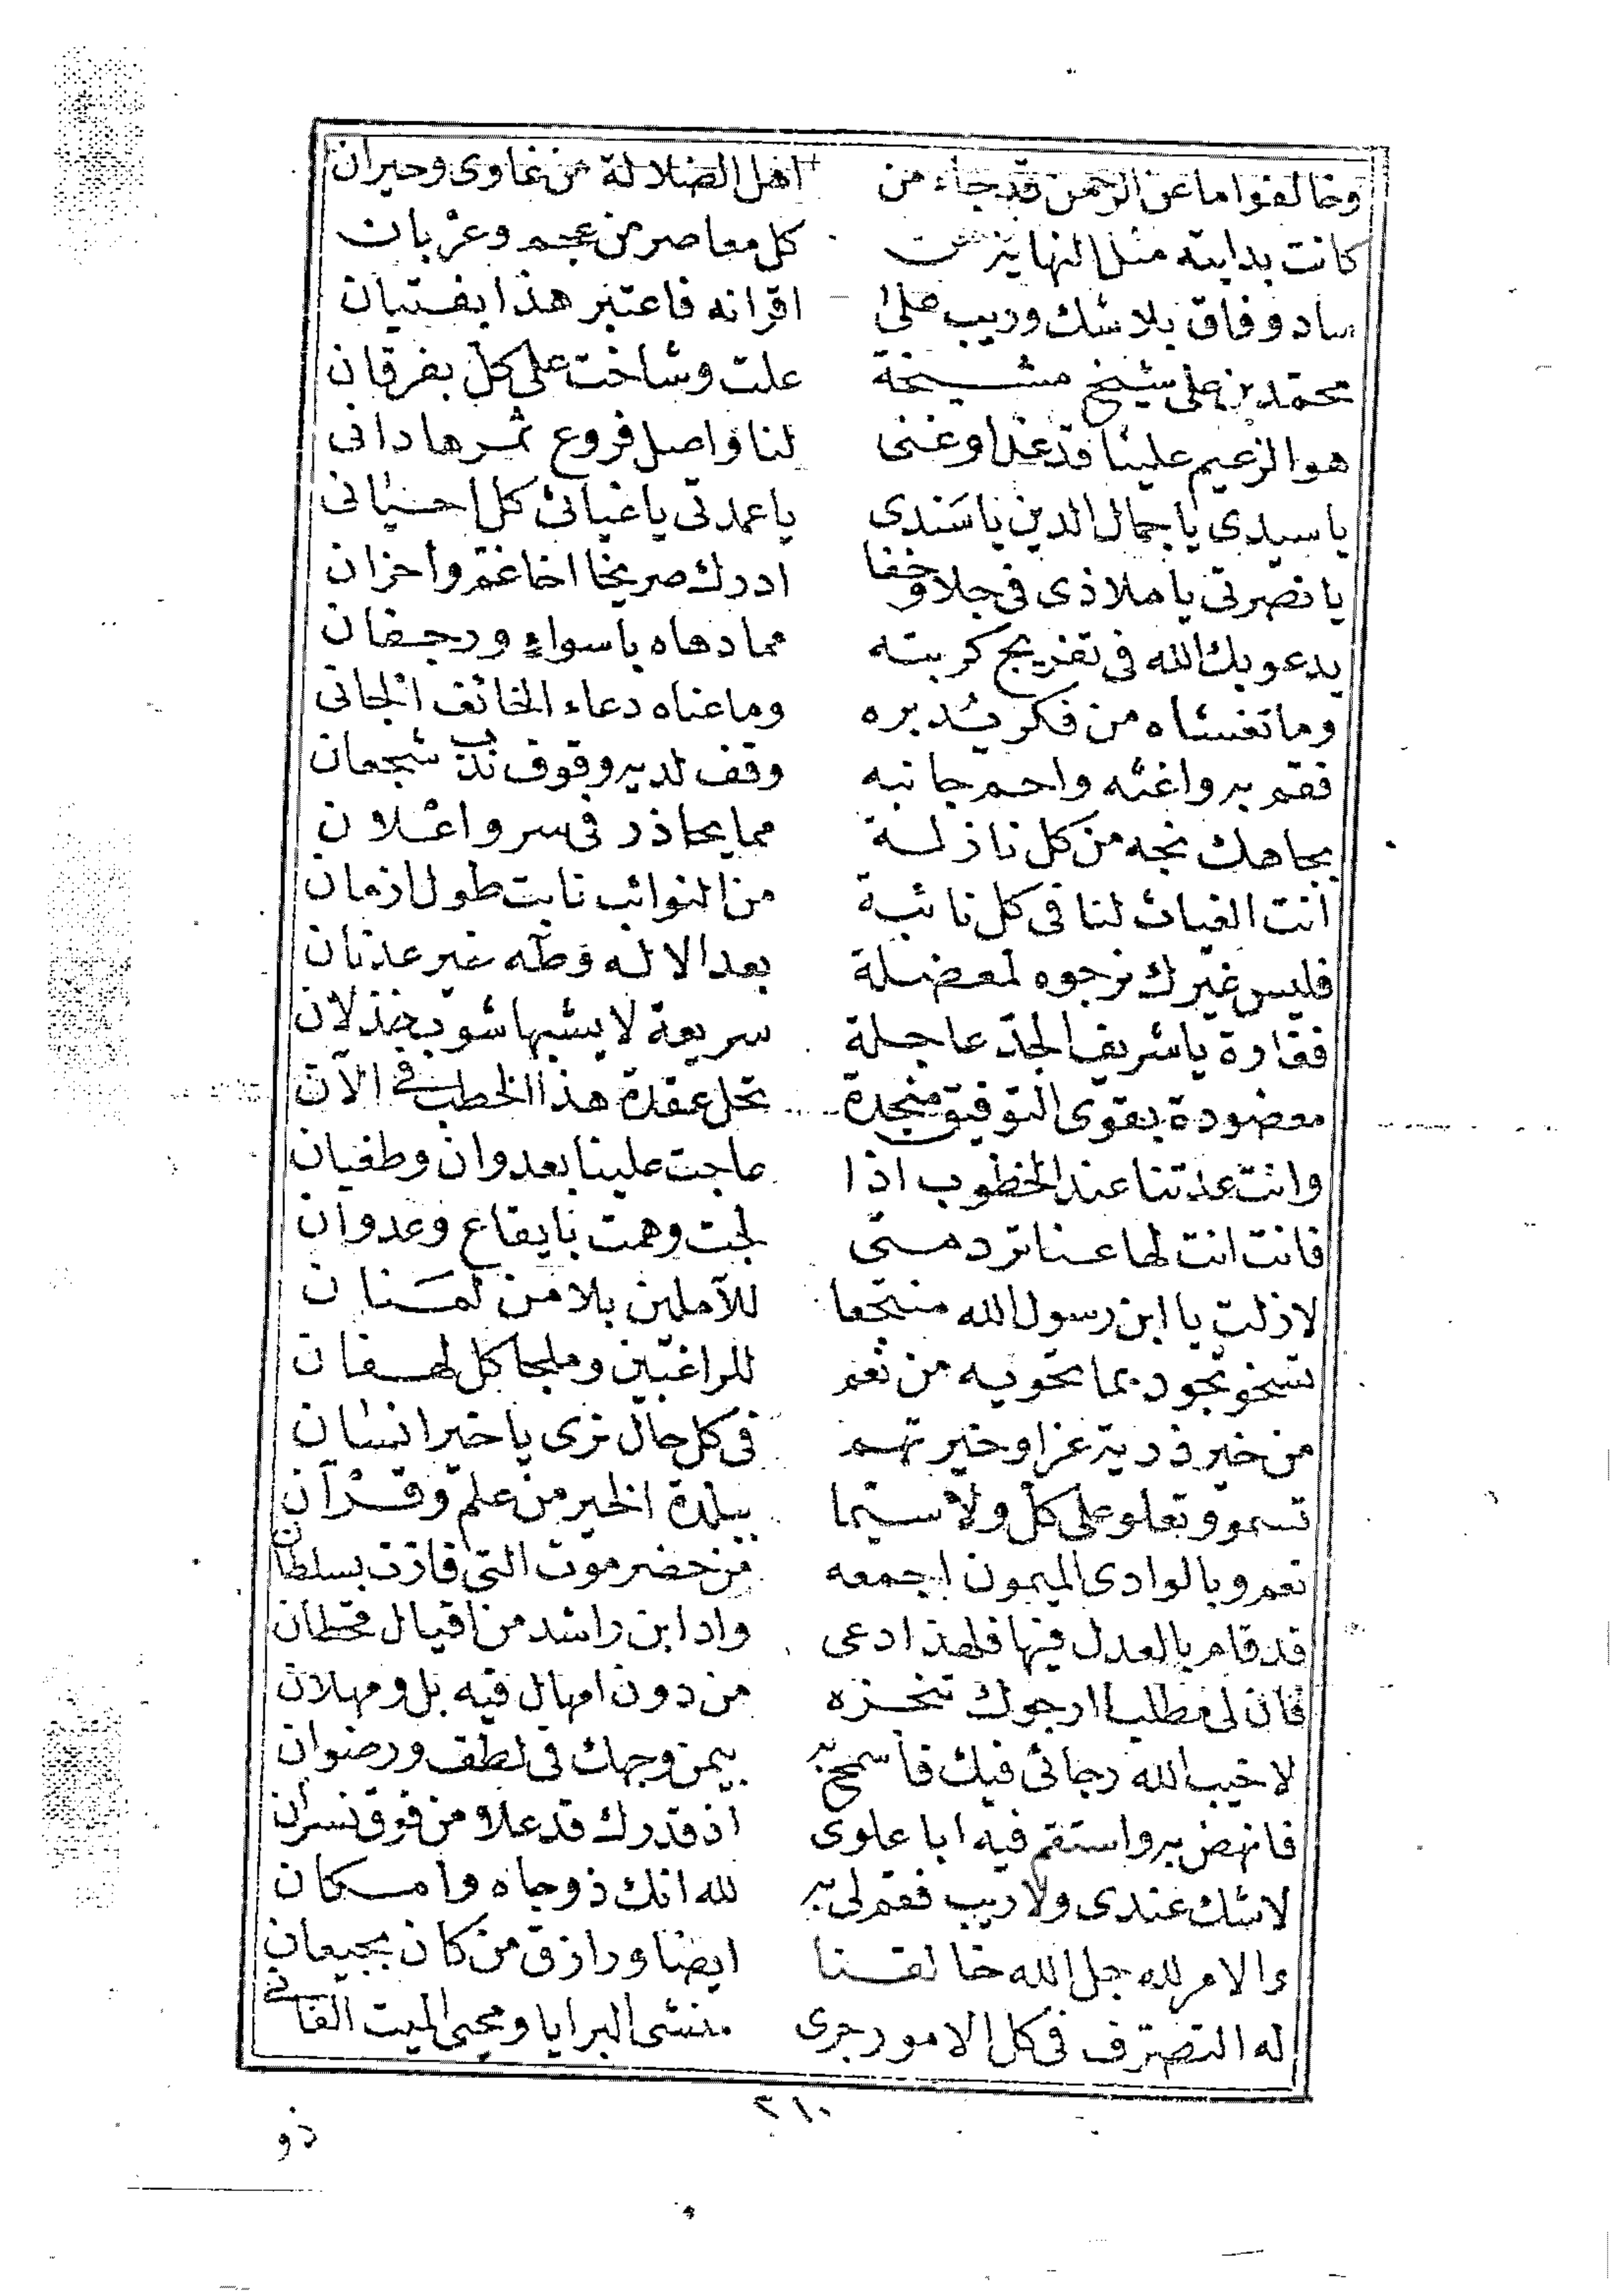 وخالفوا ما عن الرحمن قد جاء من اهل الضلالة من غاوى وحيران
كانت بدايته مثل النهاية كل معاصر من عجم وعربان
ساد وفاق بلا شك وريب على اقرانه فاعتبر هذا بفتيان
محمد بن على شيخ مشيخة علت وشاخت على كل بفرقان
هو الزعيم علينا قد غدا وغنى لنا واصل فروع ثمرها دانى
يا سيدى يا جمال الدين يا سندى يا عمدتى يا غياثى كل احيانى
يا نصرتى يا ملاذى فى جلا وخفا ادرك صريخا اخا غم واحزان
يدعو بك الله فى تفريج كربته مما دهاه باسواء ورجفان
وما تغشاه من فكر يدبره وما عناه دعاء الخائف الجانى
فقم به واغثه واحم جانبه وقف لديه وقوف ندب شجعان
بجاهك نجه من كل نازلة مما يحاذر فى سر واعلان
انت الغياث لنا فى كل نائبة من النوائب نابت طول ازمان
فليس غيرك نرجوه لمعضلة بعد الاله وطه خير عدنان
فغارة يا شريف الجد عاجلة سريعة لا يشبها شوب خذلان
معضودة بقوى التوفيق منجدة تحل عقدة هذا الخطب فى الآن
وانت عدتنا عند الخطوب اذا هاجت علينا بعدوان وطغيان
فانت انت لها عنا ترد متى لجت وهمت بايقاع وعدوان
لا زلت يا ابن رسول الله منتجعا للآملين بلا من لمنان
تسخو تجود بما تحويه من نعم للراغبين وملجا كل لهفان
من خير ذرية غرا وخيرتهم فى كل حال ترى يا خير انسان
تسمو وتعلو على كل ولا سيما ببلدة الخير من علم وقرآن
نعم وبالوادى الميمون اجمعه من حضرموت التى فازت بسلطان
قد قام بالعدل فيها فلهذا دعى واد ابن راشد من اقيال قحطان
فان لى مطلبا ارجوك تنجزه من دون امهال فيه بل ومهلان
لا خيب الله رجائى فيك فاسمح به بيمن وجهك فى لطف ورضوان
فانهض به واستقم فيه ابا علوى اذ قدرك قد علا من فوق نسران
لا شك عندى ولا ريب فقم لى به لله انك ذو جاه وامكان
والامر لله جل الله خالقنا ايضا ورازق من كان بجيعان
له التصرف فى كل الامور جرى منشى البرايا ومحيى الميت الفانى
٣١٠
ذو